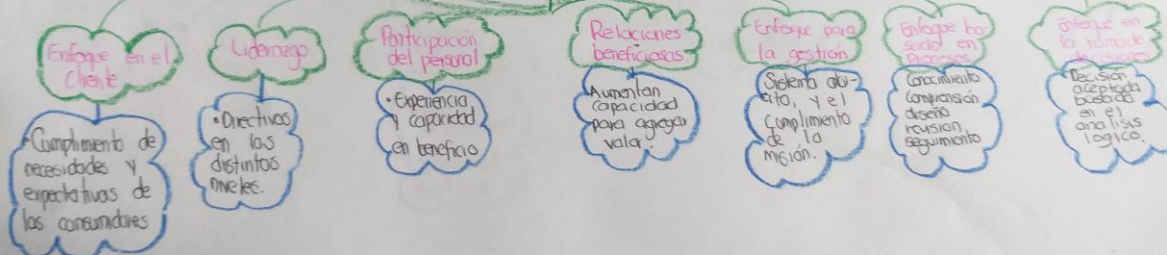 Enfoque en el
Cliente
Cumplimiento de
necesidades y
expectativas de
los consumidores
Liderazgo
• Directivos
en los
distintos
niveles.
Participación
del personal
• Experiencia
y capacidad
en beneficio
Relaciones
beneficiosas
Aumentan
capacidad
para agregar
valor.
Enfoque para
la gestión
Sistema abi-
erto, y el
Cumplimiento
de la
misión.
Enfoque ba-
sado en
Procesos
Conocimiento
Comprensión
diseño
revision,
seguimiento
Enfoque en
la toma de
Decisión
aceptada
basada
en el
analisis
logico.